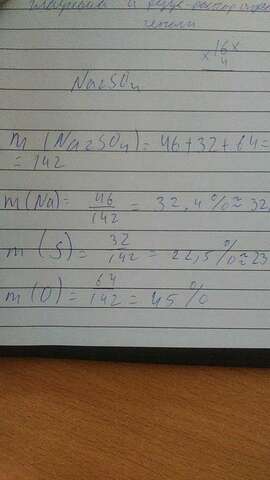 16
× 4
Na2SO4
m(Na2SO4)=46+32+64=
=142
m(Na)= 46/142 = 32,4%≈32
m(S)= 32/142 = 22,5%≈23
m(O)= 64/142 = 45%